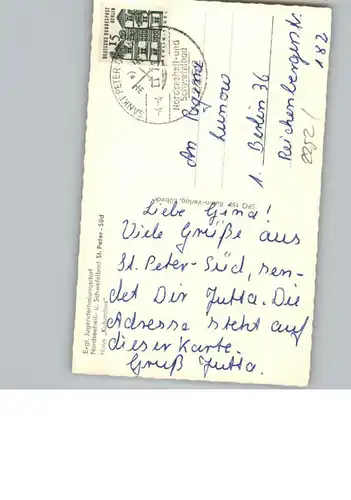 DEUTSCHE BUNDESPOST
BERLIN
15
SANKT PETER-
Nordseeheil- und
Schwefelbad
An Regina
Lunow
1. Berlin 36
Reichenbergerstr.
182
2252/
Liebe Gina!
Viele Grüße aus
St. Peter-Süd, sen-
det Dir Jutta. Die
Adresse steht auf
dieser Karte.
Gruß Jutta.
Evgl. Jugenderholungsdorf
Nordseeheil- u. Schwefelbad St. Peter-Süd
Haus „Kolumbus"
SPO 159 Rahn-Verlag, Lübeck